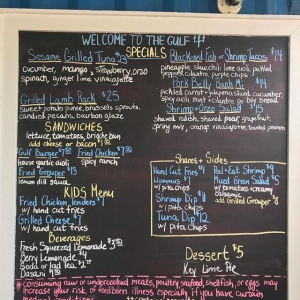 WELCOME TO THE GULF
SPECIALS
Sesame Grilled Tuna $23
cucumber, mango, strawberry, orzo
spinach, ginger lime vinaigrette
Grilled Lamb Rack $25
sweet potato puree, brussels sprouts,
candied pecans, bourbon glaze
SANDWICHES
lettuce, tomatoes, brioche bun
add cheese or bacon
Gulf Burger
Fried Chicken
house garlic aioli
spicy ranch
Fried Grouper
lemon dill sauce
KIDS Menu
Fried Chicken Tenders
w/ hand cut fries
Grilled Cheese
w/ hand cut fries
Beverages
Fresh Squeezed Lemonade
Berry Lemonade
Soda or Iced Tea
Dasani
Blackened Fish or Shrimp Tacos $14
pineapple slaw, chili lime aioli, pickled
peppers, cilantro, purple chips
Pork Belly Banh Mi $14
pickled carrot + jalapeno, sliced cucumber,
spicy aioli, mint + cilantro on
bread
Shrimp + Orzo Salad $15
shaved radish, shaved pear, grapefruit,
spring mix, orange vinaigrette, toasted almonds
Shares + Sides
Hand Cut Fries
Hummus
w/ pita chips
Shrimp Dip
w/ pita chips
Tuna Dip $12
w/ pita chips
Peel + Eat Shrimp
Mixed Green Salad $5
w/ tomatoes, creamy
balsamic
add Grilled Grouper
Dessert $5
Key Lime Pie
* consuming raw or undercooked meats, poultry, seafood, shellfish, or eggs may
increase your risk of foodborn illness especially if you have certain